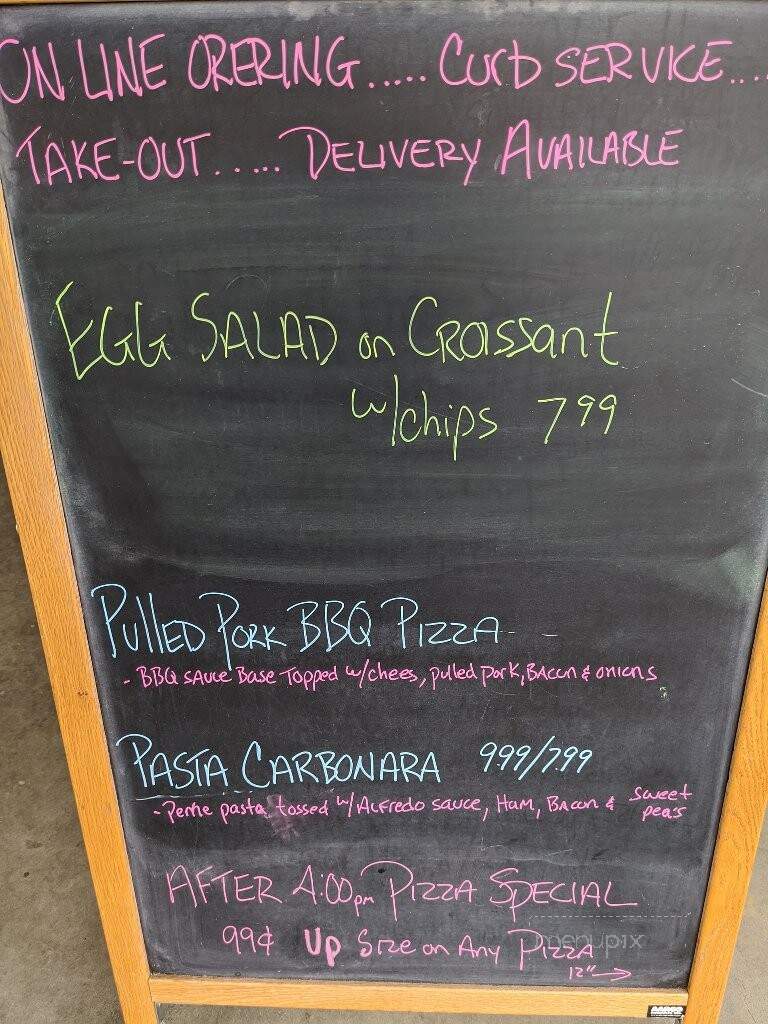 ON LINE ORERING..... Curb SERVICE....
TAKE-OUT..... DELIVERY AVAILABLE
EGG SALAD on CROISSANT
w/chips 799
PULLED PORK BBQ PIZZA - -
- BBQ SAUCE BASE TOPPED w/chees, pulled pork, BACON & ONIONS
PASTA CARBONARA 999/799
- Penne pasta tossed w/ALFREDO SAUCE, HAM, BACON & sweet
peas
AFTER 4:00pm PIZZA SPECIAL
99¢ UP SIZE on ANY PIZZA
12" →
menupix